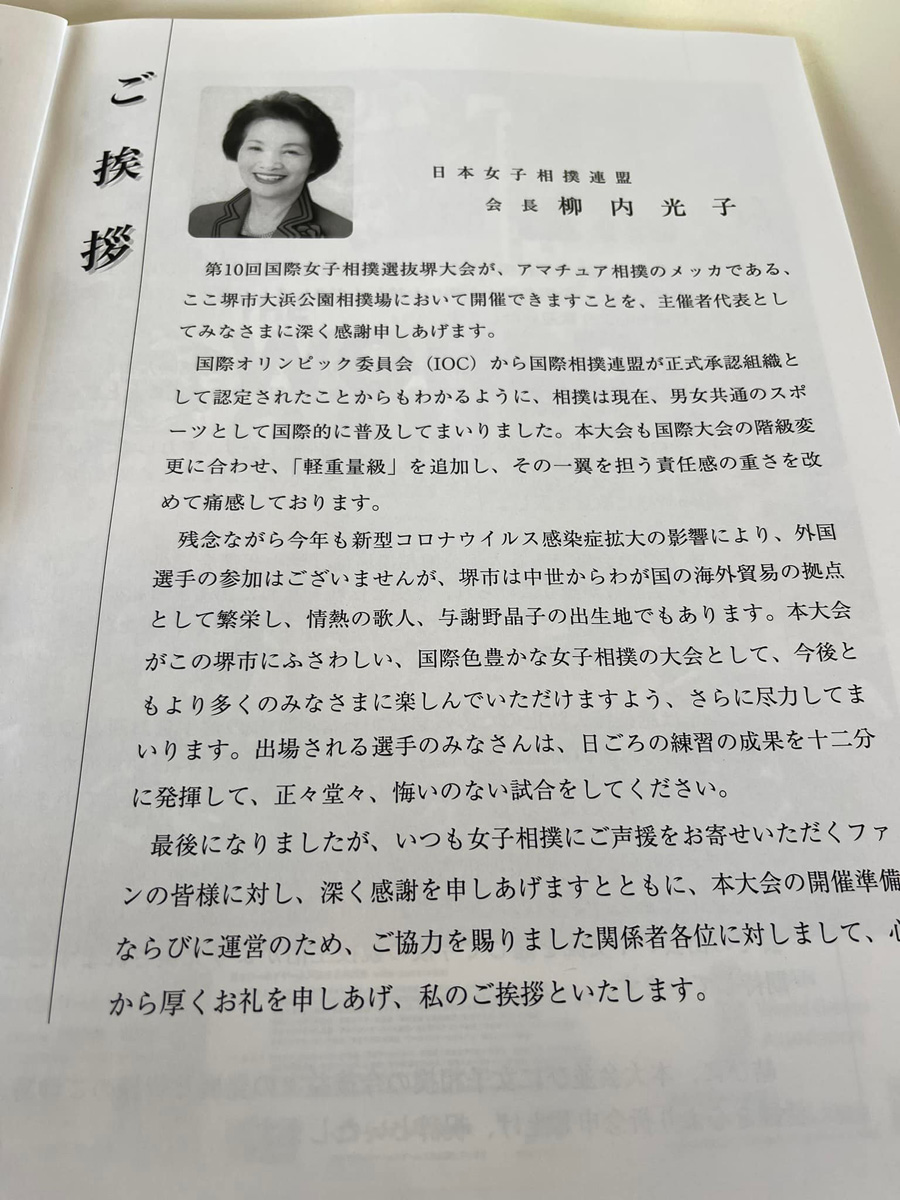 ご挨拶
日本女子相撲連盟
会長 柳内光子
第10回国際女子相撲選抜堺大会が、アマチュア相撲のメッカである、
ここ堺市大浜公園相撲場において開催できますことを、主催者代表とし
てみなさまに深く感謝申しあげます。
国際オリンピック委員会（IOC）から国際相撲連盟が正式承認組織と
して認定されたことからもわかるように、相撲は現在、男女共通のスポ
ーツとして国際的に普及してまいりました。本大会も国際大会の階級変
更に合わせ、「軽重量級」を追加し、その一翼を担う責任感の重さを改
めて痛感しております。
残念ながら今年も新型コロナウイルス感染症拡大の影響により、外国
選手の参加はございませんが、堺市は中世からわが国の海外貿易の拠点
として繁栄し、情熱の歌人、与謝野晶子の出生地でもあります。本大会
がこの堺市にふさわしい、国際色豊かな女子相撲の大会として、今後と
もより多くのみなさまに楽しんでいただけますよう、さらに尽力してま
いります。出場される選手のみなさんは、日ごろの練習の成果を十二分
に発揮して、正々堂々、悔いのない試合をしてください。
最後になりましたが、いつも女子相撲にご声援をお寄せいただくファ
ンの皆様に対し、深く感謝を申しあげますとともに、本大会の開催準備
ならびに運営のため、ご協力を賜りました関係者各位に対しまして、心
から厚くお礼を申しあげ、私のご挨拶といたします。